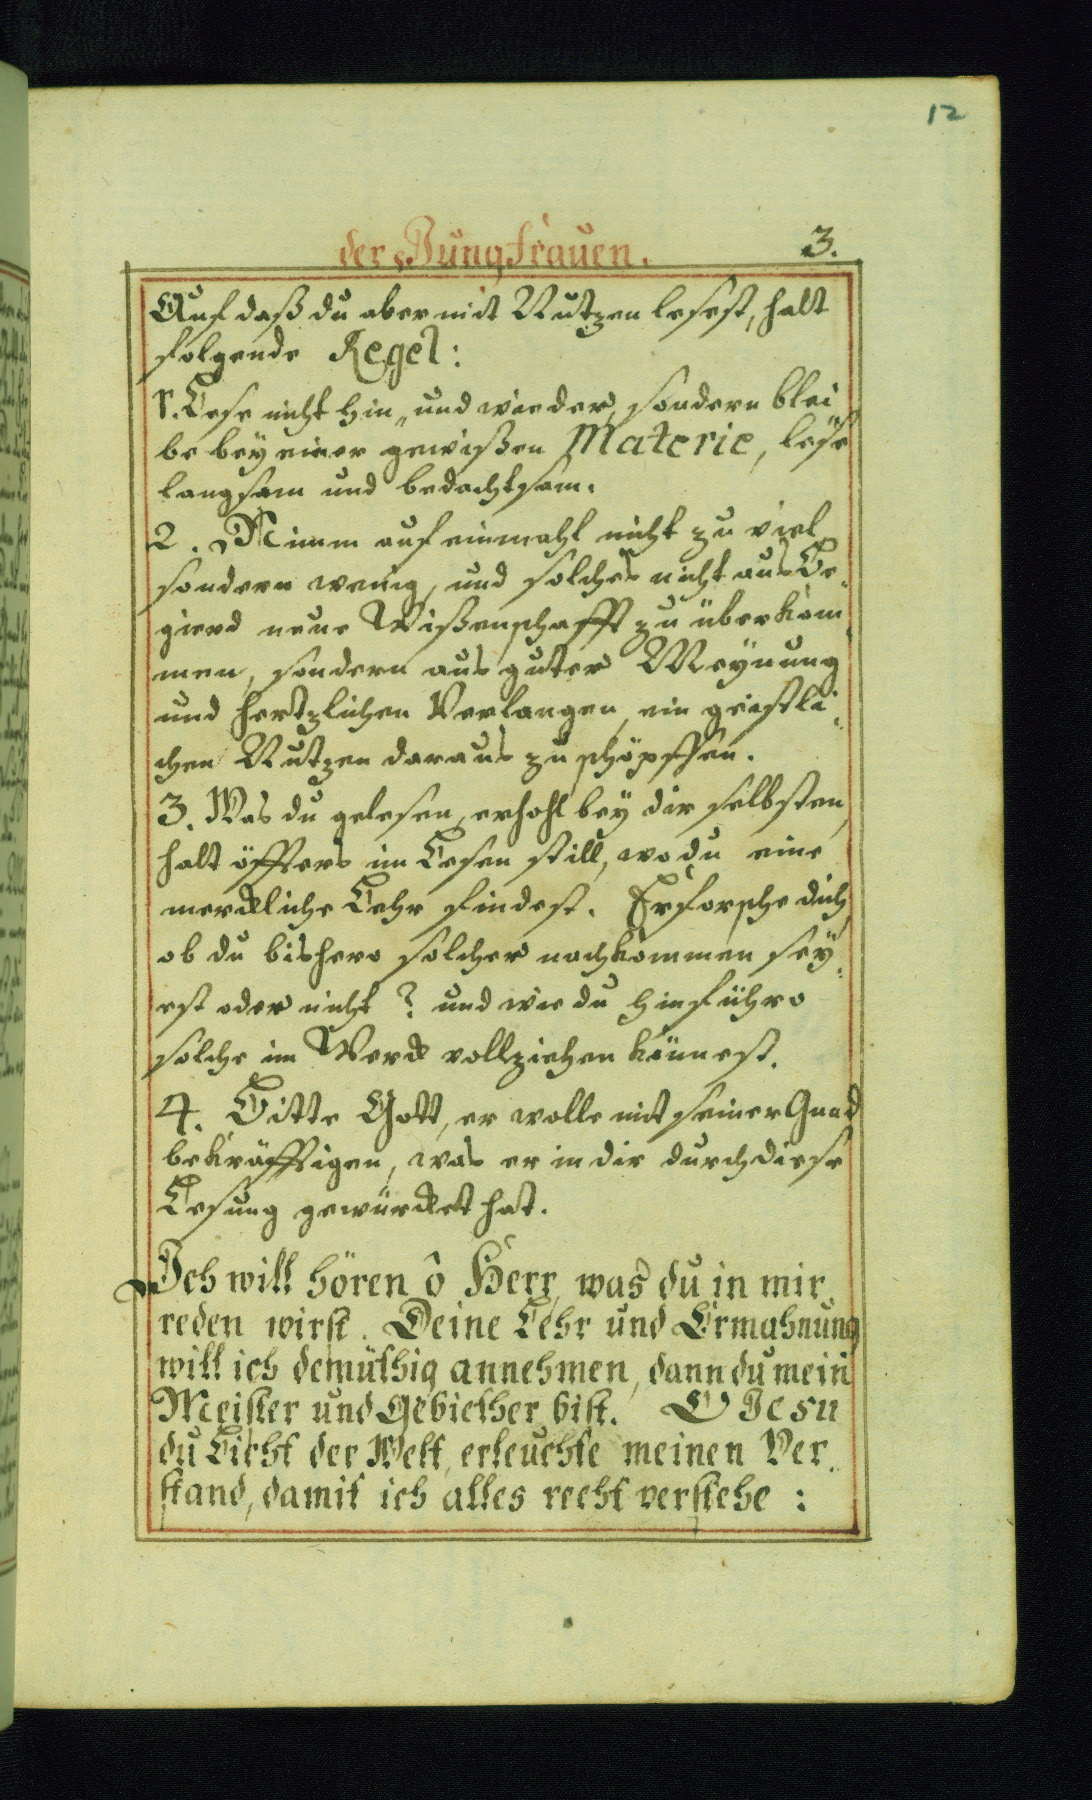 12
der Jungfrauen. 3.
Auf daß du aber mit Nutzen lesest, halt
folgende Regel:
1. Lese nicht hin- und wieder, sondern blei
be bey einer gewißen Materie, lese
langsam und bedachtsam.
2. Nimm auf einmahl nicht zu viel
sondern wenig, und solches nicht aus Be-
gierd neue Wißenschafft zu überkom-
men, sondern aus guter Meynung
und hertzlichen Verlangen, ein geistli-
chen Nutzen daraus zu schöpffen.
3. Was du gelesen, erhohl bey dir selbsten,
halt öffters im Lesen still, wo du eine
merckliche Lehr findest. Erforsche dich
ob du bishero solcher nachkommen sey-
est oder nicht? und wie du hinführo
solche im Werck vollziehen könnest.
4. Bitte Gott, er wolle mit seiner Gnad
bekräfftigen, was er in dir durch diese
Lesung gewürcket hat.
Ich will hören ô Herr, was du in mir
reden wirst. Deine Lehr und Ermahnung
will ich demüthig annehmen, dann du mein
Meister und Gebiether bist. O Jesu
du Licht der Welt, erleuchte meinen Ver-
stand, damit ich alles recht verstehe: